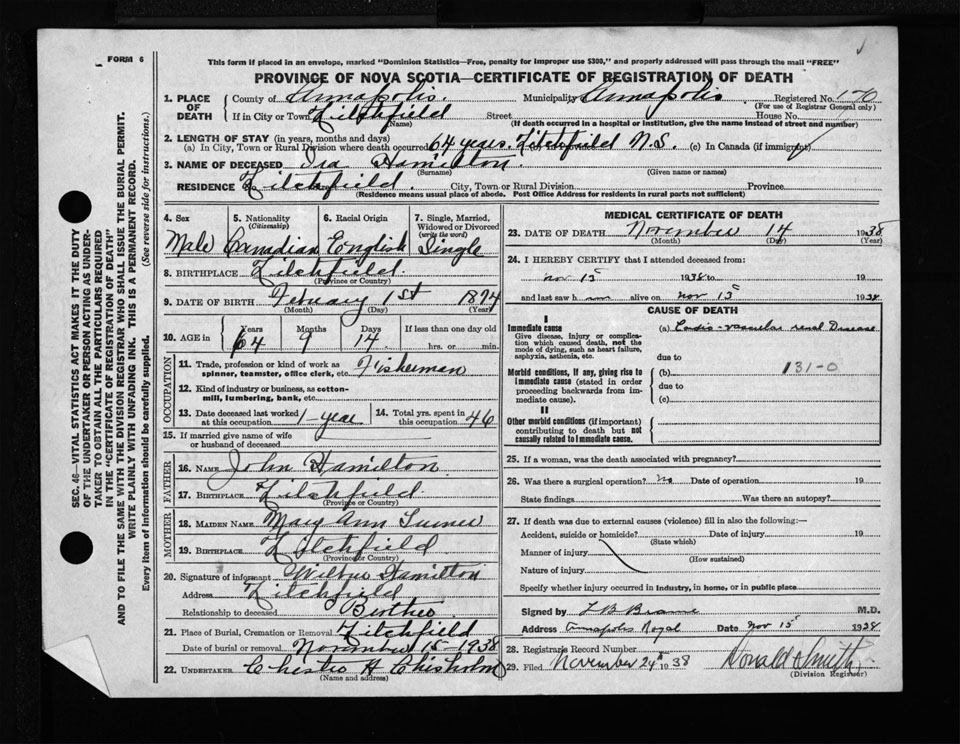 FORM 6
This form if placed in an envelope, marked "Dominion Statistics—Free, penalty for improper use $300," and properly addressed will pass through the mail "FREE"
PROVINCE OF NOVA SCOTIA—CERTIFICATE OF REGISTRATION OF DEATH
1. PLACE OF DEATH
County of Annapolis. Municipality Annapolis Registered No.
(For use of Registrar General only)
If in City or Town Litchfield Street House No.
(Name) (If death occurred in a hospital or institution, give the name instead of street and number)
2. LENGTH OF STAY (in years, months and days)
(a) In City, Town or Rural Division where death occurred 64 years. Litchfield N.S. (c) In Canada (if immigrant)
3. NAME OF DECEASED Ira Hamilton.
(Surname) (Given name or names)
RESIDENCE Litchfield. City, Town or Rural Division Province
(Residence means usual place of abode. Post Office Address for residents in rural parts not sufficient)
4. Sex 5. Nationality (Citizenship) 6. Racial Origin 7. Single, Married, Widowed or Divorced (write the word)
Male Canadian English Single
8. BIRTHPLACE Litchfield.
(Province or Country)
9. DATE OF BIRTH February 1st 1874
(Month) (Day) (Year)
10. AGE in Years Months Days If less than one day old
64 9 14. hrs. or min.
OCCUPATION
11. Trade, profession or kind of work as spinner, teamster, office clerk, etc. Fisherman
12. Kind of industry or business, as cotton-mill, lumbering, bank, etc.
13. Date deceased last worked at this occupation 1 year 14. Total yrs. spent in this occupation 46
15. If married give name of wife or husband of deceased
FATHER
16. NAME John Hamilton
17. BIRTHPLACE Litchfield.
(Province or Country)
MOTHER
18. MAIDEN NAME Mary Ann
19. BIRTHPLACE Litchfield
(Province or Country)
20. Signature of informant Hamilton
Address Litchfield
Relationship to deceased Brother
21. Place of Burial, Cremation or Removal Litchfield
Date of burial or removal November 15-1938
22. UNDERTAKER H Chisholm
(Name and address)
MEDICAL CERTIFICATE OF DEATH
23. DATE OF DEATH November 14 1938
(Month) (Day) (Year)
24. I HEREBY CERTIFY that I attended deceased from:
Nov 15 1938 to 19
and last saw h alive on Nov 15 1938
CAUSE OF DEATH
I
Immediate cause
Give disease, injury or complication which caused death, not the mode of dying, such as heart failure, asphyxia, asthenia, etc.
(a) Cardio-vascular renal Disease
due to
Morbid conditions, if any, giving rise to immediate cause (stated in order proceeding backwards from immediate cause).
(b) 131-0
due to
(c)
II
Other morbid conditions (if important) contributing to death but not causally related to immediate cause.
25. If a woman, was the death associated with pregnancy?
26. Was there a surgical operation? no Date of operation 19
State findings Was there an autopsy?
27. If death was due to external causes (violence) fill in also the following:—
Accident, suicide or homicide? Date of injury 19
(State which)
Manner of injury
(How sustained)
Nature of injury
Specify whether injury occurred in industry, in home, or in public place
Signed by M.D.
Address Annapolis Royal Date Nov 15 1938
28. Registrars Record Number
29. Filed November 24 1938 Donald Smith
(Division Registrar)
SEC. 46—VITAL STATISTICS ACT MAKES IT THE DUTY
OF THE UNDERTAKER OR PERSON ACTING AS UNDERTAKER
TO OBTAIN ALL THE PARTICULARS REQUIRED
IN THE "CERTIFICATE OF REGISTRATION OF DEATH"
AND TO FILE THE SAME WITH THE DIVISION REGISTRAR WHO SHALL ISSUE THE BURIAL PERMIT.
WRITE PLAINLY WITH UNFADING INK. THIS IS A PERMANENT RECORD.
Every item of information should be carefully supplied. (See reverse side for instructions.)